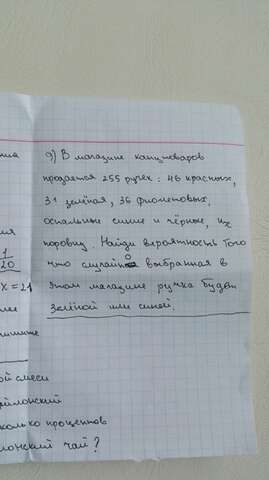 9) В магазине канцтоваров
продаётся 255 ручек: 46 красных,
31 зелёная, 36 фиолетовых,
остальные синие и чёрные, их
поровну. Найди вероятность того
что случайно выбранная в
этом магазине ручка будет
зелёной или синей.
1
20
x = 21
ой смеси
йлонский
колько процентов
лонский чай?